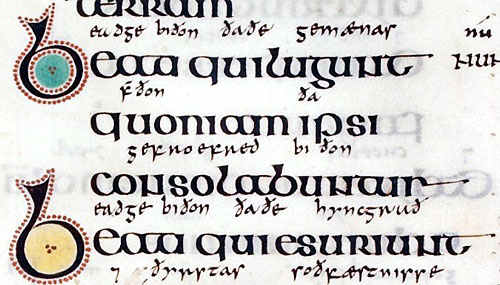 terram
eadge biðon ðaðe gemænas nū
Beati qui lugunt nun
f̄ðon ða
quoniam ipsi
gefroefred biðon
consolabuntur
eadge biðon ðaðe hyncgrað
Beati qui esuriunt
⁊ ðyrstas soðfæstnisse